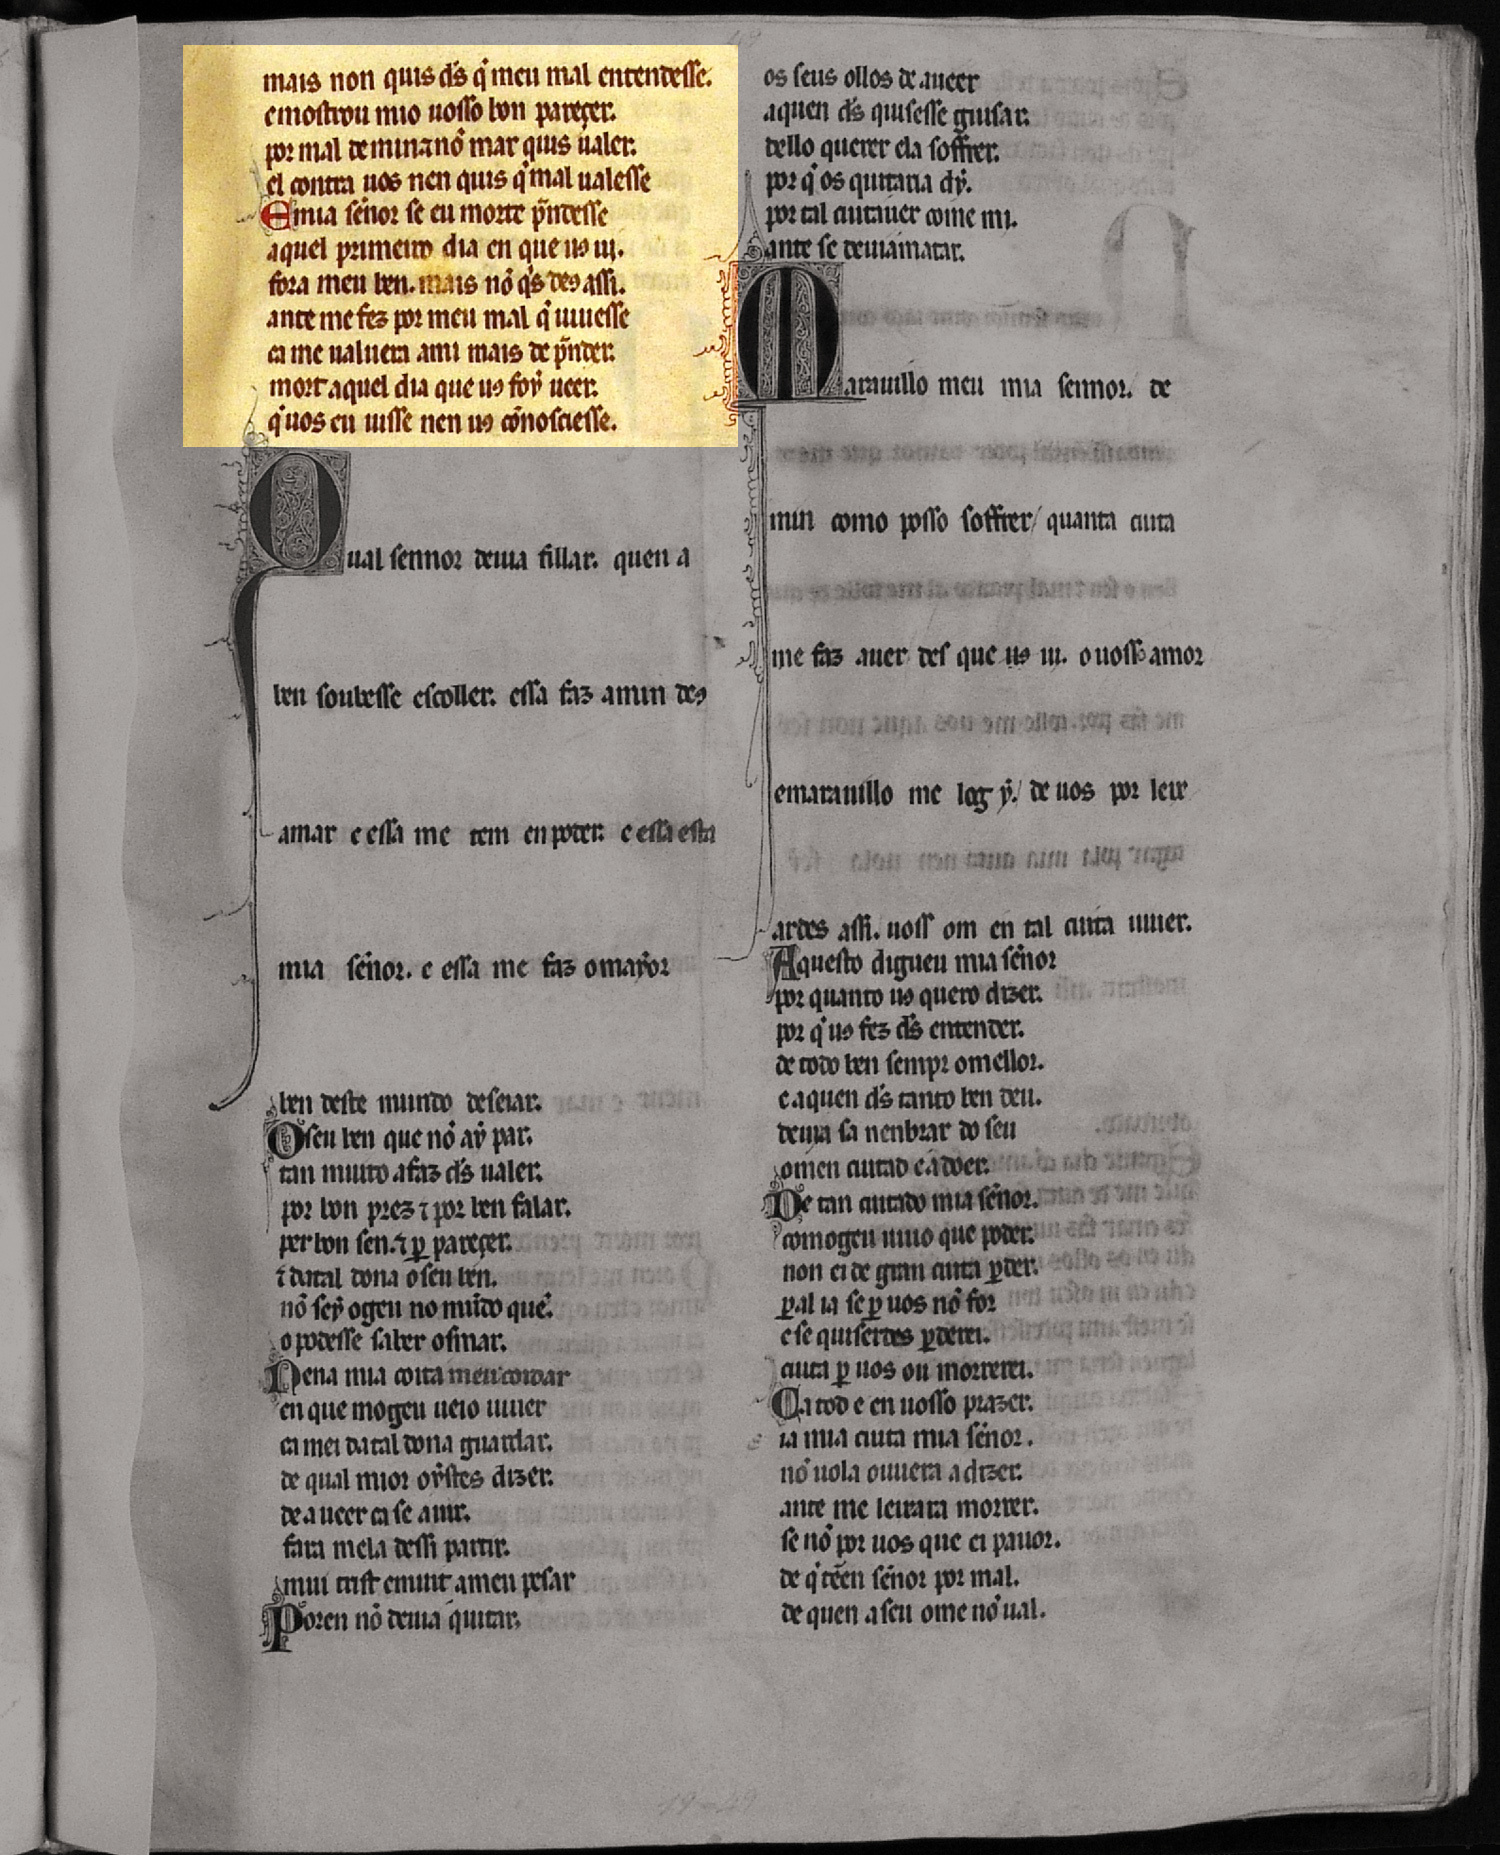 mais non quis d̅s q̅ meu mal entendesse.
e mostrou mio uosso bon pareçer.
por mal de min ⁊ nõ mar quis ualer.
el contra uos nen quis q̅ mal ualesse
E mia señor se eu morte p̃ndesse
aquel primeiro dia en que uꝯ ui.
fora meu ben. mais nõ q̇s deꝯ assi.
ante me fez por meu mal q̅ uiuesse
ca me ualuera ami mais de p̃nder.
mort aquel dia que uꝯ foy ueer.
q̅ uos eu uisse nen uꝯ cõnosciesse.
Qual sennor deuia fillar. quen a
ben soubesse escoller. essa faz amin deꝯ
amar e essa me tem en poder. e essa esta
mia señor. e essa me faz o mayor
ben deste mundo deseiar.
O seu ben que nõ aẏ par.
tan muito a faz d̅s ualer.
por bon prez ⁊ por ben falar.
per bon sen. ⁊ ꝑ pareçer.
⁊ datal dona o seu ben.
nõ seẏ ogeu no mũdo quẽ.
o podesse saber osmar.
Nena mia coita meu cordar
en que mogeu ueio uiuer
ca mei datal dona guardar.
de qual mior oẏstes dizer.
de a ueer ca se a uir.
fara mela dessi partir.
mui trist e muit a meu pesar
Poren nõ deuia quitar.
os seus ollos de a ueer
aquen d̅s quisesse guisar.
dello querer ela soffrer.
por q̅ os quitaria dẏ.
por tal cuitauer come mi.
ante se deuiamatar.
Marauillo meu mia sennor. de
min como posso soffrer/ quanta cuita
me faz auer des que uꝯ ui. o uoss amor
e marauillo me log ẏ./ de uos por leix
ardes assi. uoss om en tal cuita uiuer.
Aquesto digueu mia señor
por quanto uꝯ quero dizer.
por q̅ uꝯ fez d̅s entender.
de todo ben sempr o mellor.
e aquen d̅s tanto ben deu.
deuia sa nenbrar do seu
omen cuitad e a doer.
De tan cuitado mia señor.
comogeu uiuo que poder.
non ei de gran cuita ꝑder.
ꝑ al ia se ꝑ uos nõ for
e se quiserdes ꝑderei.
cuita ꝑ uos ou morrerei.
Ca tod e en uosso prazer.
ia mia cuita mia señor.
nõ uola ouuera a dizer.
ante me leixara morrer.
se nõ por uos que ei pauor.
de q̅ tẽen señor por mal.
de quen a seu ome nõ ual.